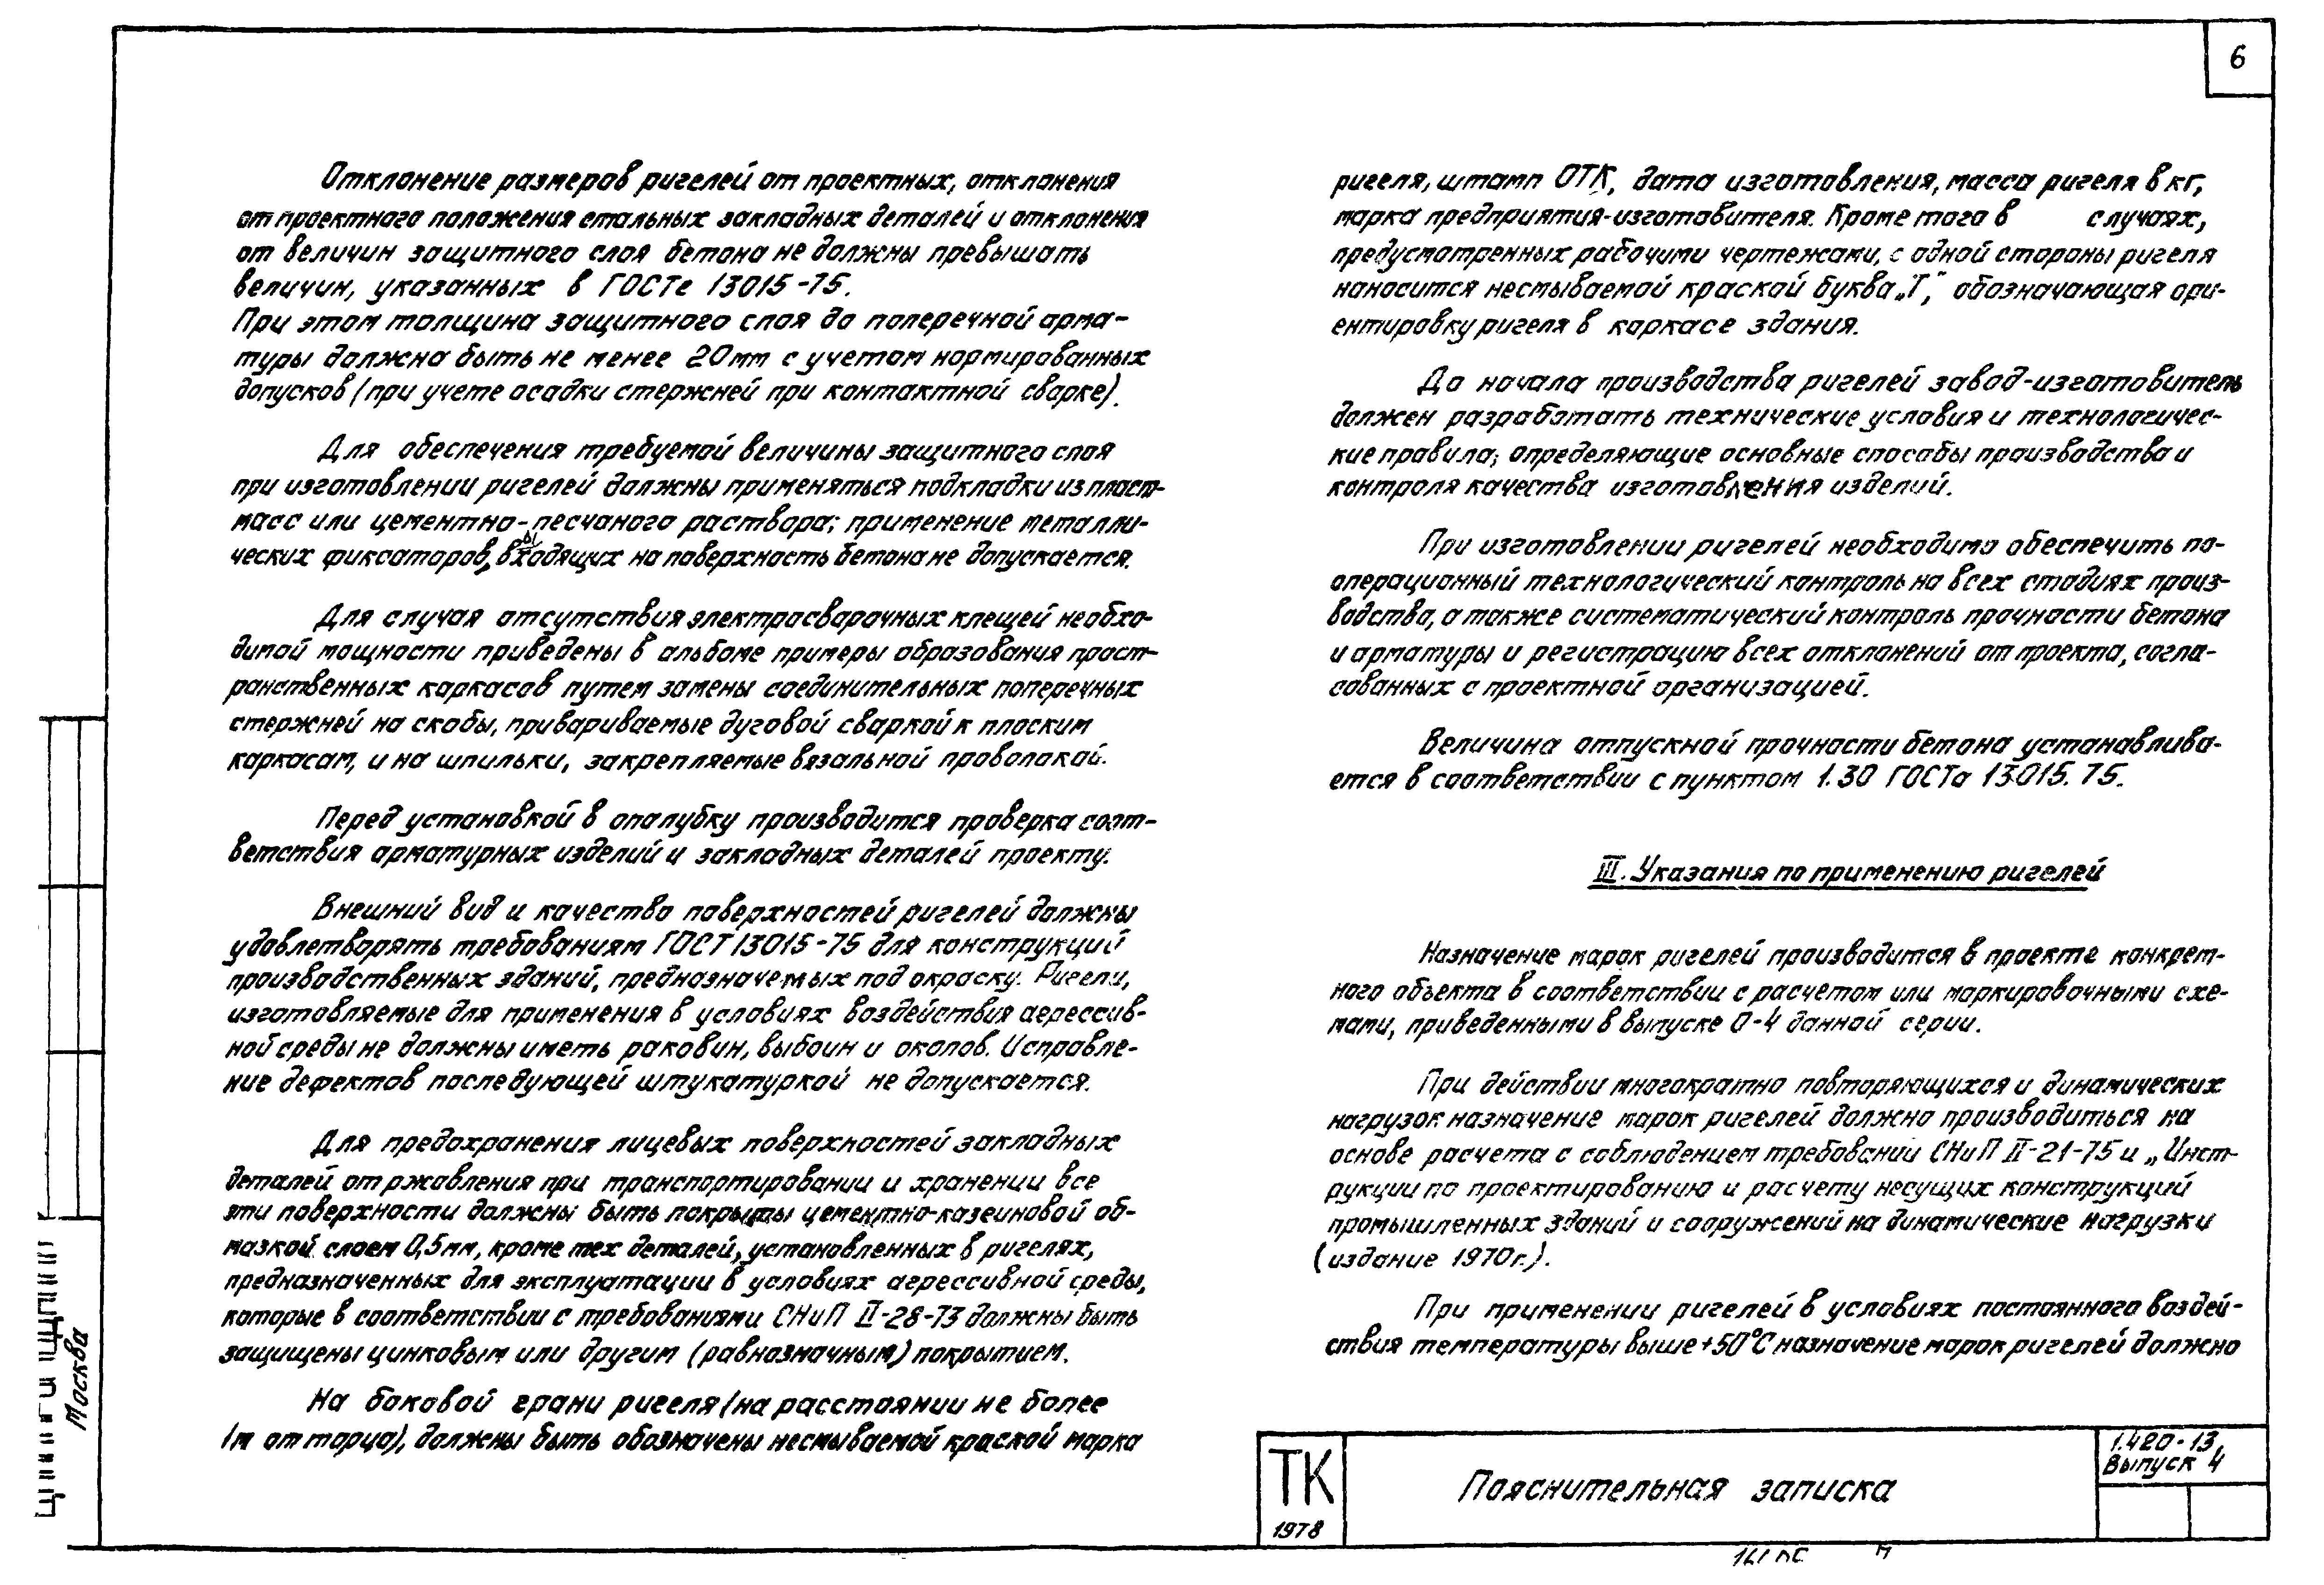 6
Отклонение размеров ригелей от проектных, отклонения
от проектного положения стальных закладных деталей и отклонения
от величин защитного слоя бетона не должны превышать
величин, указанных в ГОСТе 13015-75.
При этом толщина защитного слоя до поперечной арма-
туры должна быть не менее 20мм с учетом нормированных
допусков (при учете осадки стержней при контактной сварке).
Для обеспечения требуемой величины защитного слоя
при изготовлении ригелей должны применяться подкладки из пласт-
масс или цементно-песчаного раствора; применение металли-
ческих фиксаторов, выходящих на поверхность бетона не допускается.
Для случая отсутствия электросварочных клещей необхо-
димой мощности приведены в альбоме примеры образования прост-
ранственных каркасов путем замены соединительных поперечных
стержней на скобы, привариваемые дуговой сваркой к плоским
каркасам, и на шпильки, закрепляемые вязальной проволокой.
Перед установкой в опалубку производится проверка соот-
ветствия арматурных изделий и закладных деталей проекту.
Внешний вид и качество поверхностей ригелей должны
удовлетворять требованиям ГОСТ 13015-75 для конструкций
производственных зданий, предназначемых под окраску. Ригели,
изготовляемые для применения в условиях воздействия агрессив-
ной среды не должны иметь раковин, выбоин и околов. Исправле-
ние дефектов последующей штукатуркой не допускается.
Для предохранения лицевых поверхностей закладных
деталей от ржавления при транспортировании и хранении все
эти поверхности должны быть покрыты цементно-казеиновой об-
мазкой слоем 0,5мм, кроме тех деталей, установленных в ригелях,
предназначенных для эксплуатации в условиях агрессивной среды,
которые в соответствии с требованиями СНиП II-28-73 должны быть
защищены цинковым или другим (равнозначным) покрытием.
На боковой грани ригеля (на расстоянии не более
1м от торца), должны быть обозначены несмываемой краской марка
ригеля, штамп ОТК, дата изготовления, масса ригеля в кг,
марка предприятия-изготовителя. Кроме того в случаях,
предусмотренных рабочими чертежами, с одной стороны ригеля
наносится несмываемой краской буква „Т," обозначающая ори-
ентировку ригеля в каркасе здания.
До начала производства ригелей завод-изготовитель
должен разработать технические условия и технологичес-
кие правила, определяющие основные способы производства и
контроля качества изготовления изделий.
При изготовлении ригелей необходимо обеспечить по-
операционный технологический контроль на всех стадиях произ-
водства, а также систематический контроль прочности бетона
и арматуры и регистрацию всех отклонений от проекта, согла-
сованных с проектной организацией.
Величина отпускной прочности бетона устанавлива-
ется в соответствии с пунктом 1.30 ГОСТа 13015.75.
III. Указания по применению ригелей
Назначение марок ригелей производится в проекте конкрет-
ного объекта в соответствии с расчетом или маркировочными схе-
мами, приведенными в выпуске 0-4 данной серии.
При действии многократно повторяющихся и динамических
нагрузок назначение марок ригелей должно производиться на
основе расчета с соблюдением требований СНиП II-21-75 и „Инст-
рукции по проектированию и расчету несущих конструкций
промышленных зданий и сооружений на динамические нагрузки
(издание 1970г.).
При применении ригелей в условиях постоянного воздей-
ствия температуры выше +50°С назначение марок ригелей должно
Москва
ТК
1978
Пояснительная записка
1.420-13,
Выпуск 4